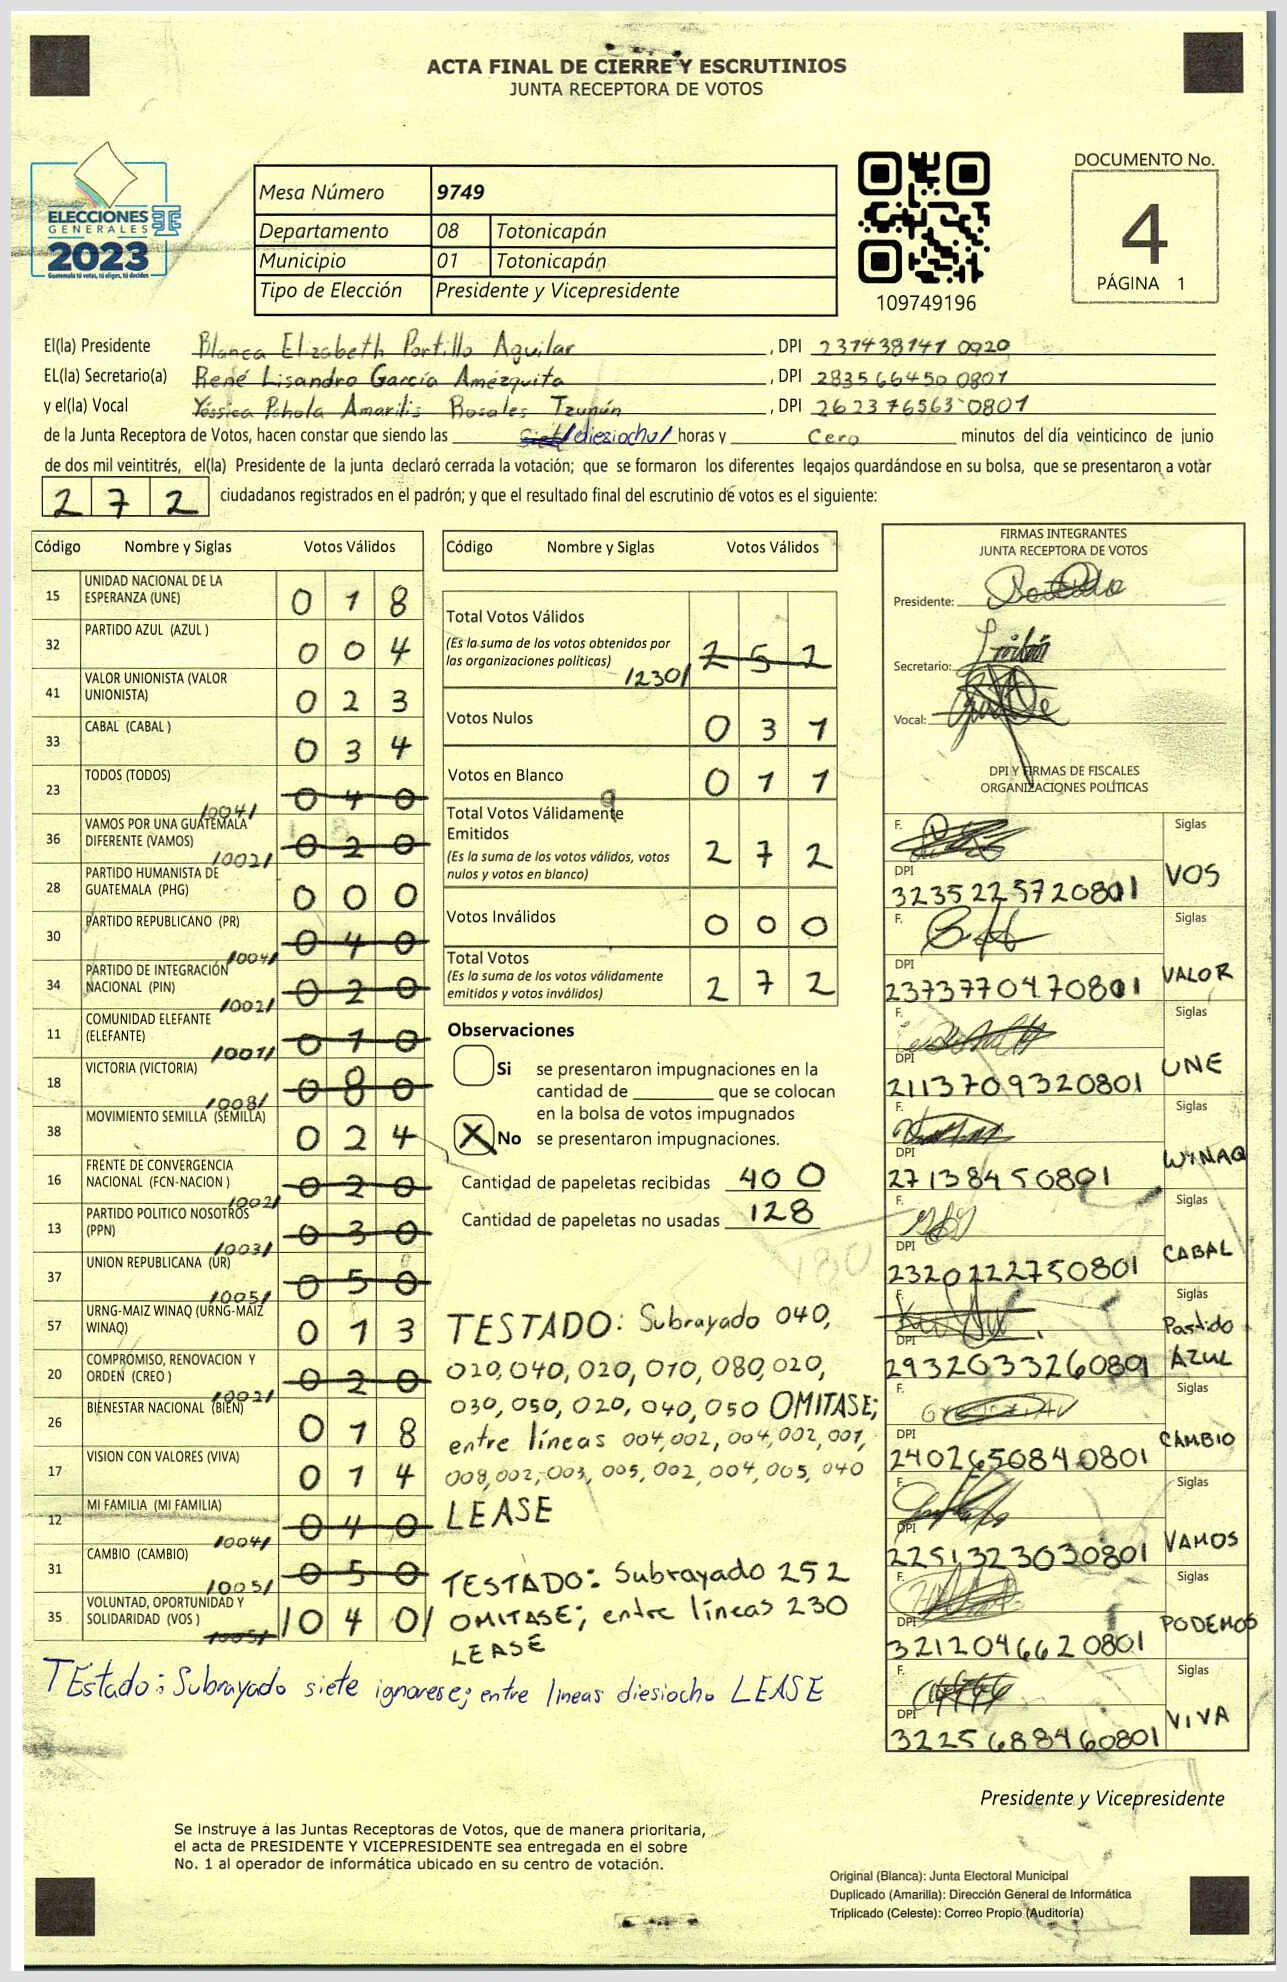 ACTA FINAL DE CIERRE Y ESCRUTINIOS
JUNTA RECEPTORA DE VOTOS
ELECCIONES
GENERALES
2023
Guatemala tú votas, tú eliges, tú decides
Mesa Número 9749
Departamento 08 Totonicapán
Municipio 01 Totonicapán
Tipo de Elección Presidente y Vicepresidente
109749196
DOCUMENTO No.
4
PÁGINA 1
El(la) Presidente Blanca Elizabeth Portillo Aguilar, DPI 237438141 0920
EL(la) Secretario(a) René Lisandro García Amézquita, DPI 283566450 0801
y el(la) Vocal Yéssica Pahola Amarilis Rosales Tzunún, DPI 262376563 0801
de la Junta Receptora de Votos, hacen constar que siendo las siete /diesiocho/ horas y Cero minutos del día veinticinco de junio
de dos mil veintitrés, el(la) Presidente de la junta declaró cerrada la votación; que se formaron los diferentes legajos guardándose en su bolsa, que se presentaron a votar
272 ciudadanos registrados en el padrón; y que el resultado final del escrutinio de votos es el siguiente:
Código Nombre y Siglas Votos Válidos
15 UNIDAD NACIONAL DE LA ESPERANZA (UNE) 018
32 PARTIDO AZUL (AZUL ) 004
41 VALOR UNIONISTA (VALOR UNIONISTA) 023
33 CABAL (CABAL ) 034
23 TODOS (TODOS) /004/ 040
36 VAMOS POR UNA GUATEMALA DIFERENTE (VAMOS) /002/ 020
28 PARTIDO HUMANISTA DE GUATEMALA (PHG) 000
30 PARTIDO REPUBLICANO (PR) /004/ 040
34 PARTIDO DE INTEGRACIÓN NACIONAL (PIN) /002/ 020
11 COMUNIDAD ELEFANTE (ELEFANTE) /001/ 010
18 VICTORIA (VICTORIA) /008/ 080
38 MOVIMIENTO SEMILLA (SEMILLA) 024
16 FRENTE DE CONVERGENCIA NACIONAL (FCN-NACION ) /002/ 020
13 PARTIDO POLITICO NOSOTROS (PPN) /003/ 030
37 UNION REPUBLICANA (UR) /005/ 050
57 URNG-MAIZ WINAQ (URNG-MAIZ WINAQ) 013
20 COMPROMISO, RENOVACION Y ORDEN (CREO ) /002/ 020
26 BIENESTAR NACIONAL (BIEN) 018
17 VISION CON VALORES (VIVA) 014
12 MI FAMILIA (MI FAMILIA) /004/ 040
31 CAMBIO (CAMBIO) /005/ 050
35 VOLUNTAD, OPORTUNIDAD Y SOLIDARIDAD (VOS ) /005/ /040/
Código Nombre y Siglas Votos Válidos
Total Votos Válidos
(Es la suma de los votos obtenidos por
las organizaciones políticas) /230/ 252
Votos Nulos 031
Votos en Blanco 011
Total Votos Válidamente
Emitidos
(Es la suma de los votos válidos, votos
nulos y votos en blanco) 272
Votos Inválidos 000
Total Votos
(Es la suma de los votos válidamente
emitidos y votos inválidos) 272
Observaciones
Si se presentaron impugnaciones en la
cantidad de ________ que se colocan
en la bolsa de votos impugnados
X No se presentaron impugnaciones.
Cantidad de papeletas recibidas 400
Cantidad de papeletas no usadas 128
TESTADO: Subrayado 040,
020, 040, 020, 010, 080, 020,
030, 050, 020, 040, 050 OMITASE;
entre líneas 004, 002, 004, 002, 001,
008, 002, 003, 005, 002, 004, 005, 040
LEASE
TESTADO: Subrayado 252
OMITASE; entre líneas 230
LEASE
TEstado: Subrayado siete ignorese; entre lineas diesiocho LEASE
FIRMAS INTEGRANTES
JUNTA RECEPTORA DE VOTOS
Presidente:
Secretario:
Vocal:
DPI Y FIRMAS DE FISCALES
ORGANIZACIONES POLÍTICAS
F. Siglas
DPI 3235225720801 VOS
F. Siglas
DPI 2373770470801 VALOR
F. Siglas
DPI 2113709320801 UNE
F. Siglas
DPI 27138450801 WINAQ
F. Siglas
DPI 2320222750801 CABAL
F. Siglas
DPI 2932033260801 Partido AZUL
F. Siglas
DPI 2402650840801 CAMBIO
F. Siglas
DPI 2251323030801 VAMOS
F. Siglas
DPI 3212046620801 PODEMOS
F. Siglas
DPI 3225688460801 VIVA
Presidente y Vicepresidente
Se instruye a las Juntas Receptoras de Votos, que de manera prioritaria,
el acta de PRESIDENTE Y VICEPRESIDENTE sea entregada en el sobre
No. 1 al operador de informática ubicado en su centro de votación.
Original (Blanca): Junta Electoral Municipal
Duplicado (Amarilla): Dirección General de Informática
Triplicado (Celeste): Correo Propio (Auditoría)